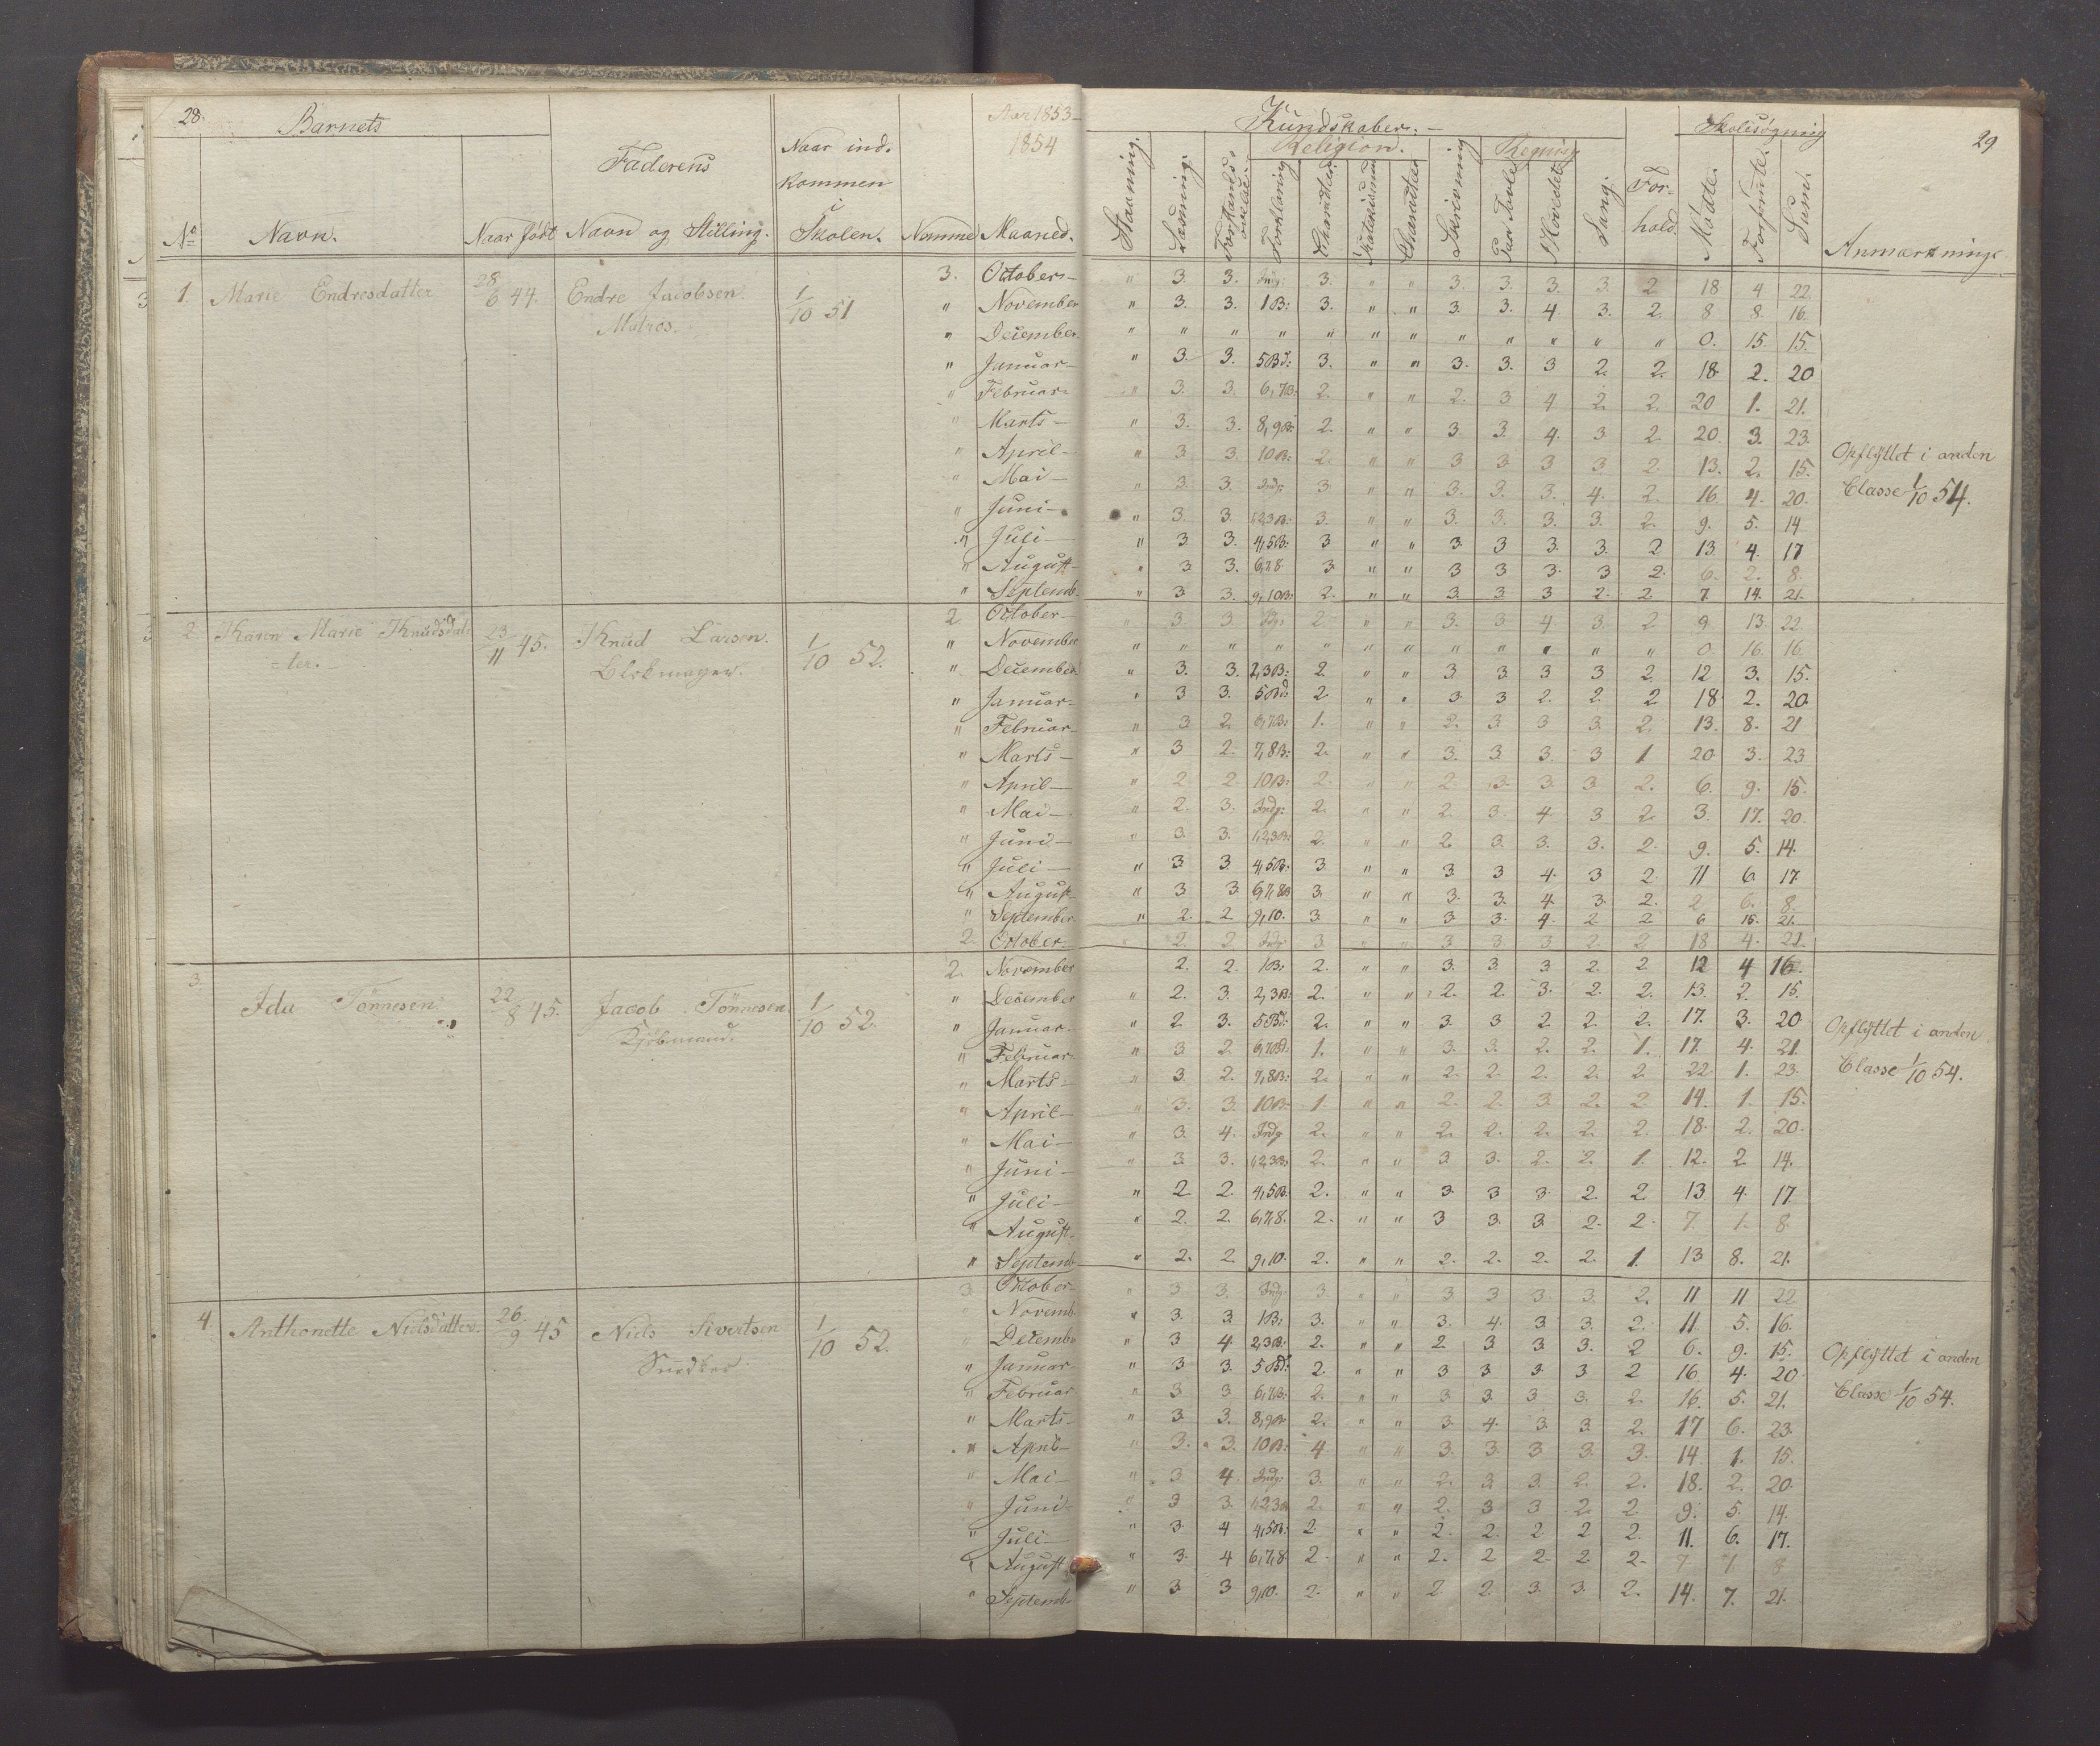 28. Barnets Aar 1853-
1854
Faderens Naar ind-
kommen
i
No Navn. Naar født Navn og Stilling. Skolen. Nomme Maaned.
Kundskaber. Skolesøgning 29
Religion. Regning
Stavning. Læsning. Forstands-øvelse Forklaring Skrivning Paa Tavle I Hovedet Sang. For-
hold. Mødte. Forsømte. Sum. Anmærkning.
1. Marie Endresdatter 28/6 44. Endre Jacobsen. 1/10 51 3. October-
Matros.
" November
" December.
" Januar-
" Februar-
" Marts-
" April-
" Mai-
" Juni-
" Juli-
" August-
" Septemb.
" 3. 3. Indg: 3. " " 3. 3. 3. 3. 2 18 4 22.
" 3. 3. 1B: 3. " " 3. 3. 4. 3. 2. 8 8. 16.
" " " " " " " " " " " " 0. 15. 15.
" 3. 3. 5Bd: 3. " " 3. 3. 3 2. 2. 18 2. 20
" 3. 3. 6,7B: 2. " " 2. 3 4 2. 2. 20 1. 21.
" 3. 3. 8,9B: 2. " " 3. 3. 4. 3. 2 20. 3. 23.
" 3 3. 10B: 2. " " 3 3 3 3 2 13. 2. 15.
" 3. 3. Indg. 3. " " 3. 3. 3. 4. 2. 16. 4. 20.
" 3. 3. 1,2,3B: 3. " " 3. 3. 3. 3. 2. 9. 5. 14
" 3 3. 4,5B: 3 " " 3 3 3. 3. 2 13 4. 17
" 3 3. 6,7,8 3. " " 3 3 3. 3 2. 6. 2. 8.
" 3 3. 9,10B: 2. " " 3. 3 3 2. 2 7. 14. 21.
Opflyttet i anden
Classe 1/10 54.
2 Karen Marie Knudsdat- 23/11 45. Knud Larsen. 1/10 52. 2 October-
=ter.- Blokmager.
" November
" December
" Januar-
" Februar-
" Marts-
" April-
" Mai-
" Juni-
" Juli-
" August-
" September
2. October-
" 3. 3. Indg: 2. " " 3. 3 4. 3. 2 9. 13. 22.
" " " " " " " " " " " " 0. 16. 16.
" 3. 3. 2,3B: 2. " " 3 3. 3 3 2. 12 3. 15.
" 3 3. 5Bd: 2. " " 3 3 2. 2. 2 18. 2. 20.
" 3 2. 6,7B: 1. " " 2. 3. 3 3 2. 13. 8. 21
" 3 2. 7,8B: 2. " " 3. 3. 3. 3 1 20 3. 23
" 2. 2. 10B: 2. " " 2. 3. 3. 3. 2. 6. 9. 15.
" 2. 3. Indg: 2. " " 2. 3. 4. 3 2. 3. 17. 20.
" 3. 3. 1,2,3B: 2. " " 2. 3. 3. 3. 2. 9. 5. 14.
" 3. 3 4,5B. 3 " " 3 3 4. 3 2. 11 6 17
" 3 3. 6,7,8B 3. " " 3. 3. 4. 3. 2. 2 6. 8.
" 2. 2 9,10. 3. " " 3 3. 4. 2 2. 6 15. 21.
" 2. 2 Indg. 3. " " 3 3 3 2. 2 18 4. 22.
3. Ida Tønnesen 22/8 45. Jacob Tønnesen 1/10 52. 2. November
Kjøbmand.
" December
" Januar-
" Februar-
" Marts-
" April-
" Mai-
" Juni-
" Juli-
" August-
" Septemb
2. 2. 1B: 2. " " 3. 3. 3 2. 2 12 4 16.
" 2. 3. 2,3B: 2. " " 2. 2. 3. 2. 2. 13. 2. 15.
" 2 3. 5Bd: 2. " " 3. 3 2. 2. 2. 17. 3. 20
" 3. 2. 6,7Bd. 1. " " 3. 3. 2. 2. 1. 17. 4. 21.
" 3. 2. 7,8B: 2. " " 2. 2. 2. 2. 2. 22 1. 23.
" 3. 3. 10B. 1. " " 2. 2. 3. 2. 2 14. 1. 15.
" 3. 4. Indg 2. " " 2. 2. 2. 2. 2. 18. 2. 20.
" 3. 3. 1,2,3B: 2. " " 3 3. 2. 2. 1. 12. 2. 14.
" 2 2. 4,5B. 2. " " 3. 3 3. 2. 2. 13 4. 17
" 2. 2. 6,7,8. 2. " " 3 3. 3. 2. 2. 7. 1. 8
" 2. 2 9,10. 2. " " 2. 2. 2. 2. 1. 13 8. 21.
Opflyttet i anden
Classe 1/10 54.
4. Anthonette Nielsdatter. 26/9 45 Niels Sivertsen 1/10 52. 3. October-
Snedker.
Novemb.
Decembr
" Januar-
" Februar.
" Marts-
" April-
" Mai-
" Juni-
" Juli-
" August
" Septemb-
" 3 3. Indg. 3. " " 3 3 3. 3. 2. 11 11 22
" 3. 3 1B: 3. " " 3. 4. 3 3. 2. 11. 5. 16.
" 3 4 2,3B. 2. " " 2 3 3 3. 2 6. 9. 15.
" 3 3. 5Bd: 2. " " 3 3 3. 3 2 16 4. 20
" 3 3 6,7B: 2. " " 3 3 3 3. 2. 16. 5. 21.
" 3. 3. 8,9B. 2. " " 3. 4. 3. 3. 2. 17 6. 23.
" 3. 3. 10B: 4. " " 3. 3. 3 3. 3. 14. 1. 15.
" 3. 4. Indg: 3. " " 2. 3. 3. 2. 2. 18. 2. 20.
" 3 3. 1,2,3B 2. " " 2. 3 3 2. 2. 9. 5. 14.
" 3. 4 4,5B: 2. " " 2. 2. 2 2. 2. 11. 6. 17.
" 3. 4 6,7,8 2. " " 2. 2 2. 2. 2. 7 1 8
" 3 3 9,10. 2. " " 2 2. 3. 3. 2. 14. 7. 21.
Opflyttet i anden
Classe 1/10 54.